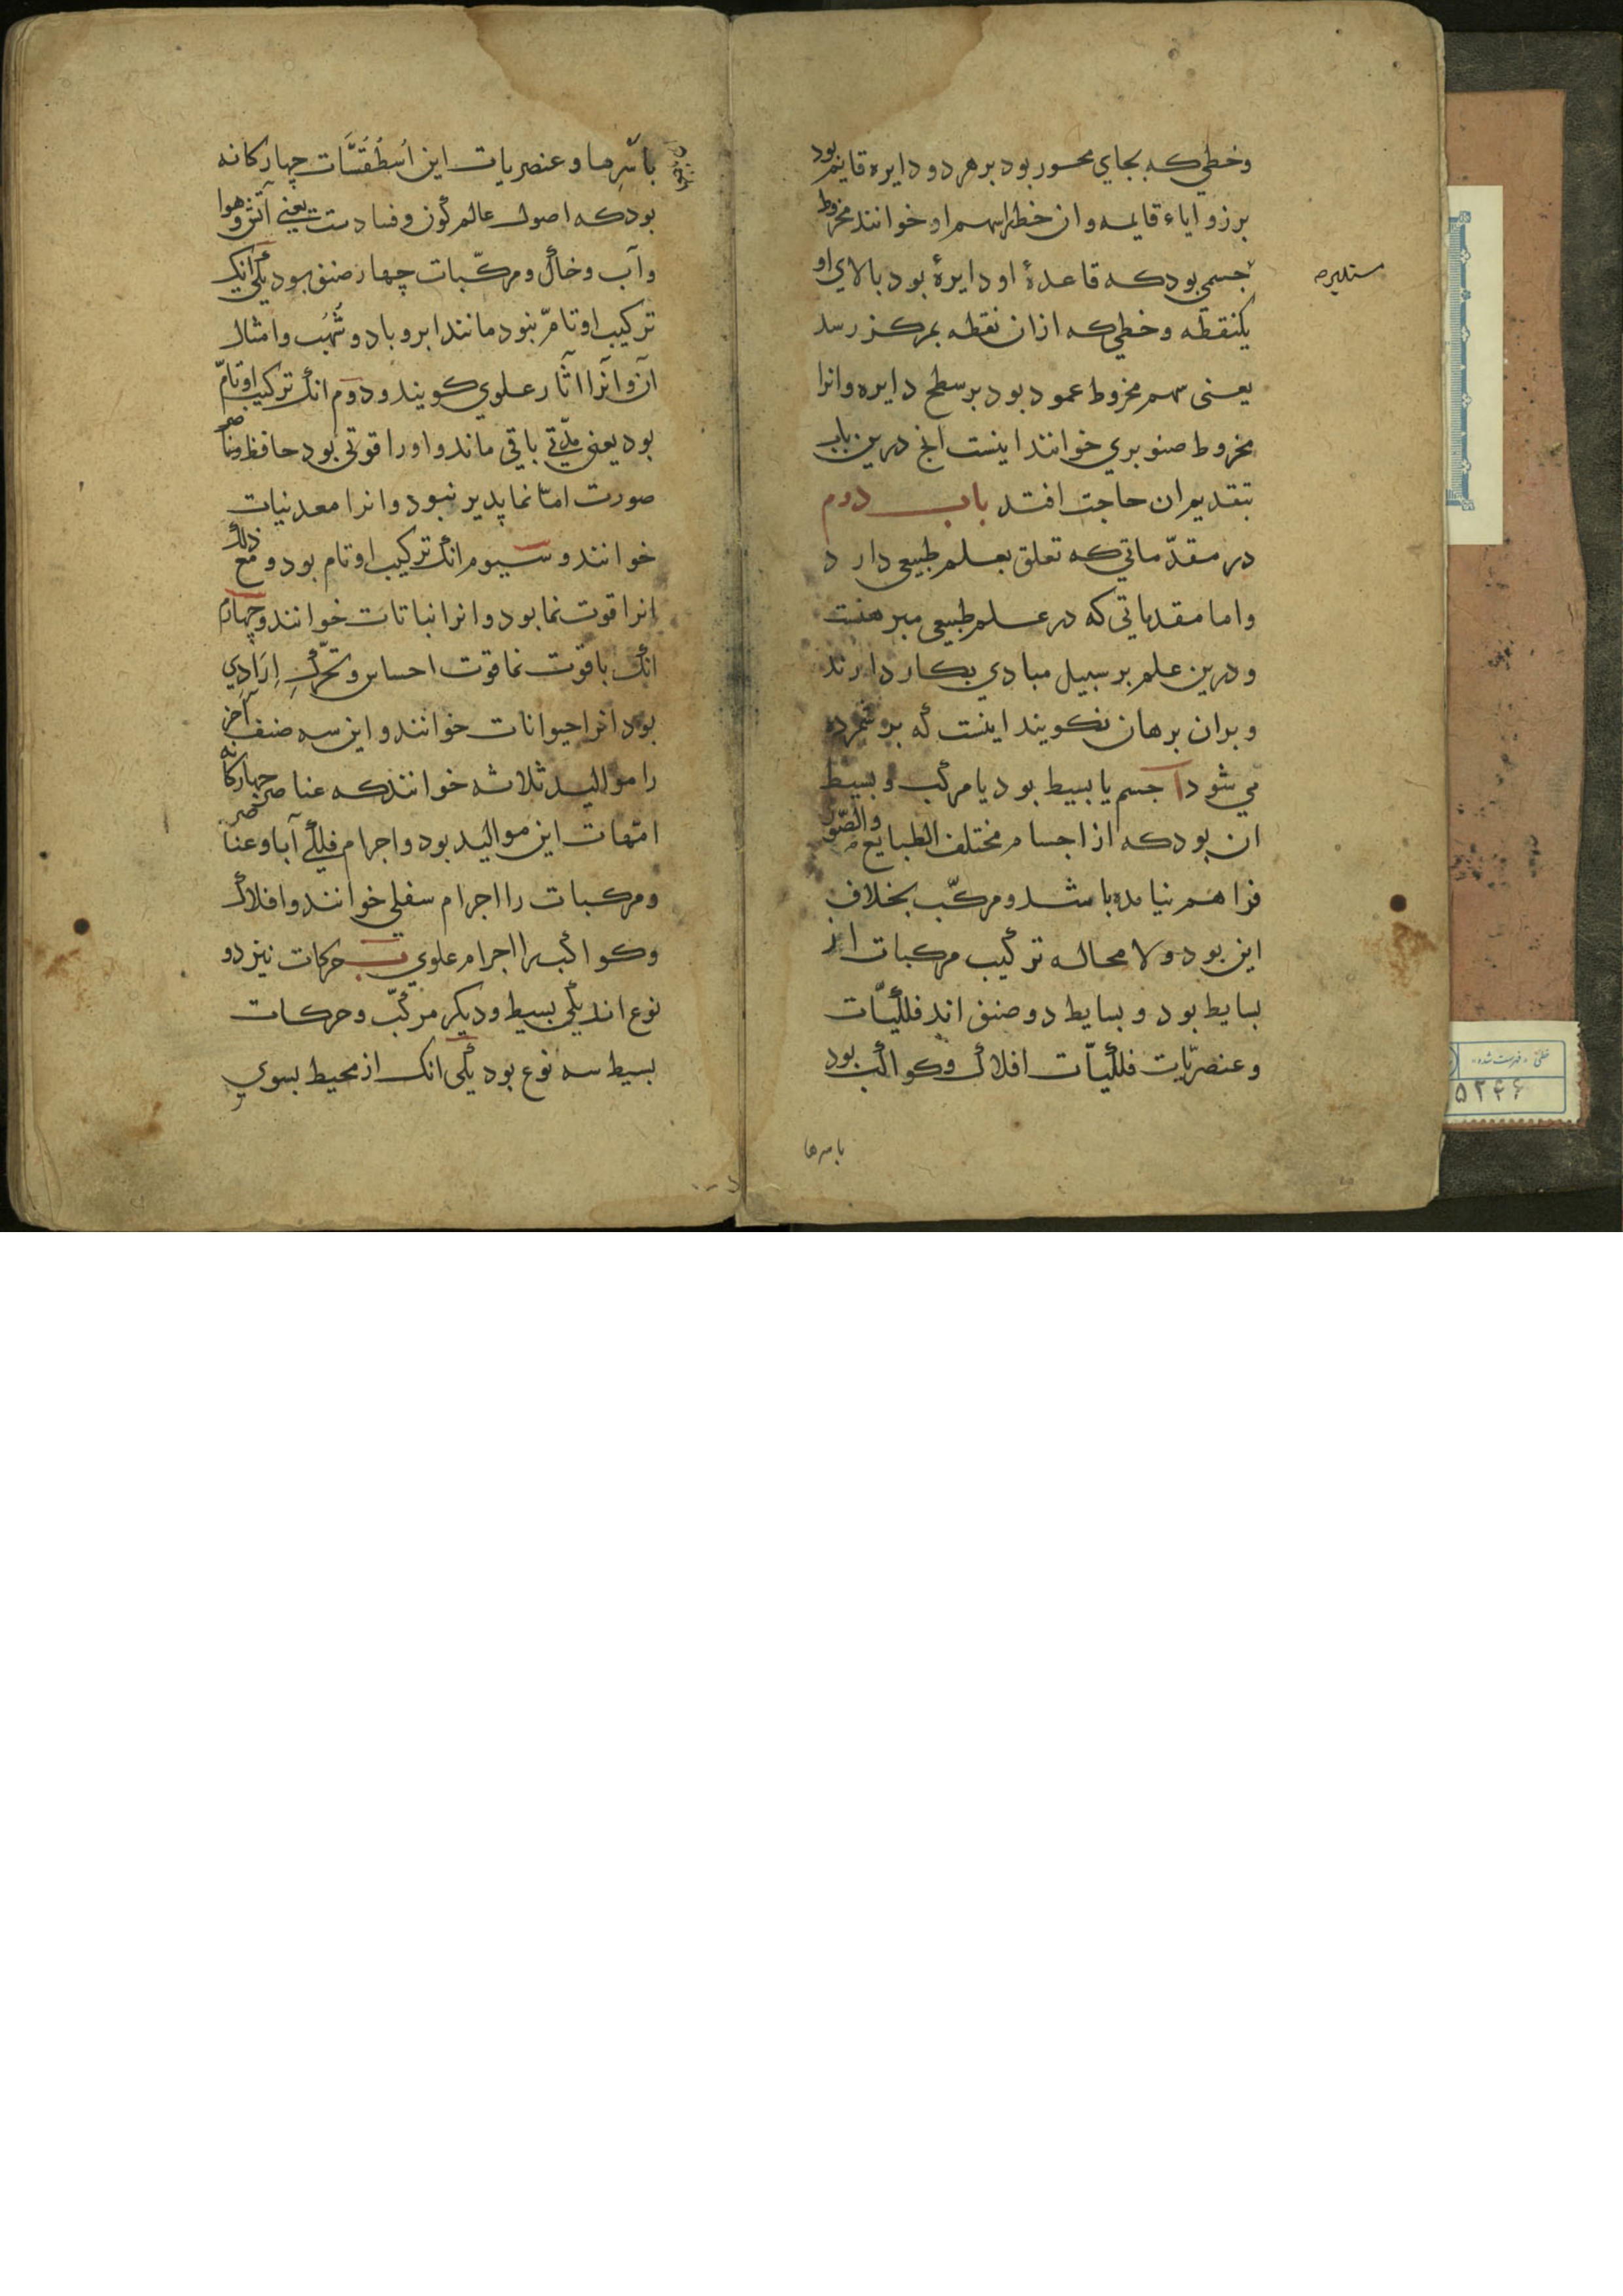 وخطي که بجاي محور بود بر هر دو دايره قايم بود
بر زواياء قايمه و ان خط را سهم او خوانند مخروط
مستديره
جسمي بود که قاعدۀ او دايرۀ بود بالاي او
يکنقطه وخطي که ازان نقطه بمرکز رسد
يعنى سهم مخروط عمود بود بر سطح دايره وانرا
مخروط صنوبري خوانند اينست انچ درين باب
بتقديم ان حاجت افتد باب دوم
در مقدّماتي که تعلق بعلم طبيعى دارد
واما مقدماتى که در علم طبيعى مبرهنست
ودرين علم بر سبيل مبادي بکار دارند
وبران برهان نکويند اينست که بر شمرده
مي شود آ جسم يا بسيط بود يا مرکب و بسيط
ان بود که از اجسام مختلف الطبايع والصّور
فراهم نيامده باشد ومرکّب بخلاف
اين بود ولا محاله ترکيب مرکبات از
بسايط بود و بسايط دو صنف اند فلکيّات
وعنصريّات فلکيّات افلاک وکواکب بود
با سرها
باَسْرِها وعنصريات اين اُسطُقُسَّات چهارکانه
بود که اصول عالم کون وفسادست يعنى آتش وهوا
وآب وخاک ومرکّبات چهار صنف بود يکى انک
ترکيب او تامّ نبود مانند ابر وباد وشُهُب وامثال
آن وآنرا آثار علوي کويند ودوم انک ترکيب او تامّ
بود يعنى مدّتى باقي ماند واورا قوتى بود حافظ
صورت امّا نماپدير نبود وانرا معدنيات
خوانند وسيوم انک ترکيب او تام بود ومع ذلک
انرا قوت نما بود وانرا نباتات خوانند وچهارم
انک با قوت نما قوت احساس وتحرّکِ اِرَادِي
بود انرا حيوانات خوانند واين سه صنف آخر
را مواليد ثلاثه خوانند که عناصر چهارکانه
امّهات اين مواليد بود واجرام فلکي آبا وعناصر
ومرکبات را اجرام سفلى خوانند وافلاک
وکواکب را اجرام علوي ب حرکات نيز دو
نوع اند يکى بسيط وديکر مرکّب وحرکات
بسيط سه نوع بود يکى انک از محيط بسوي
خطى، فهرست شده
۵۲۴۶